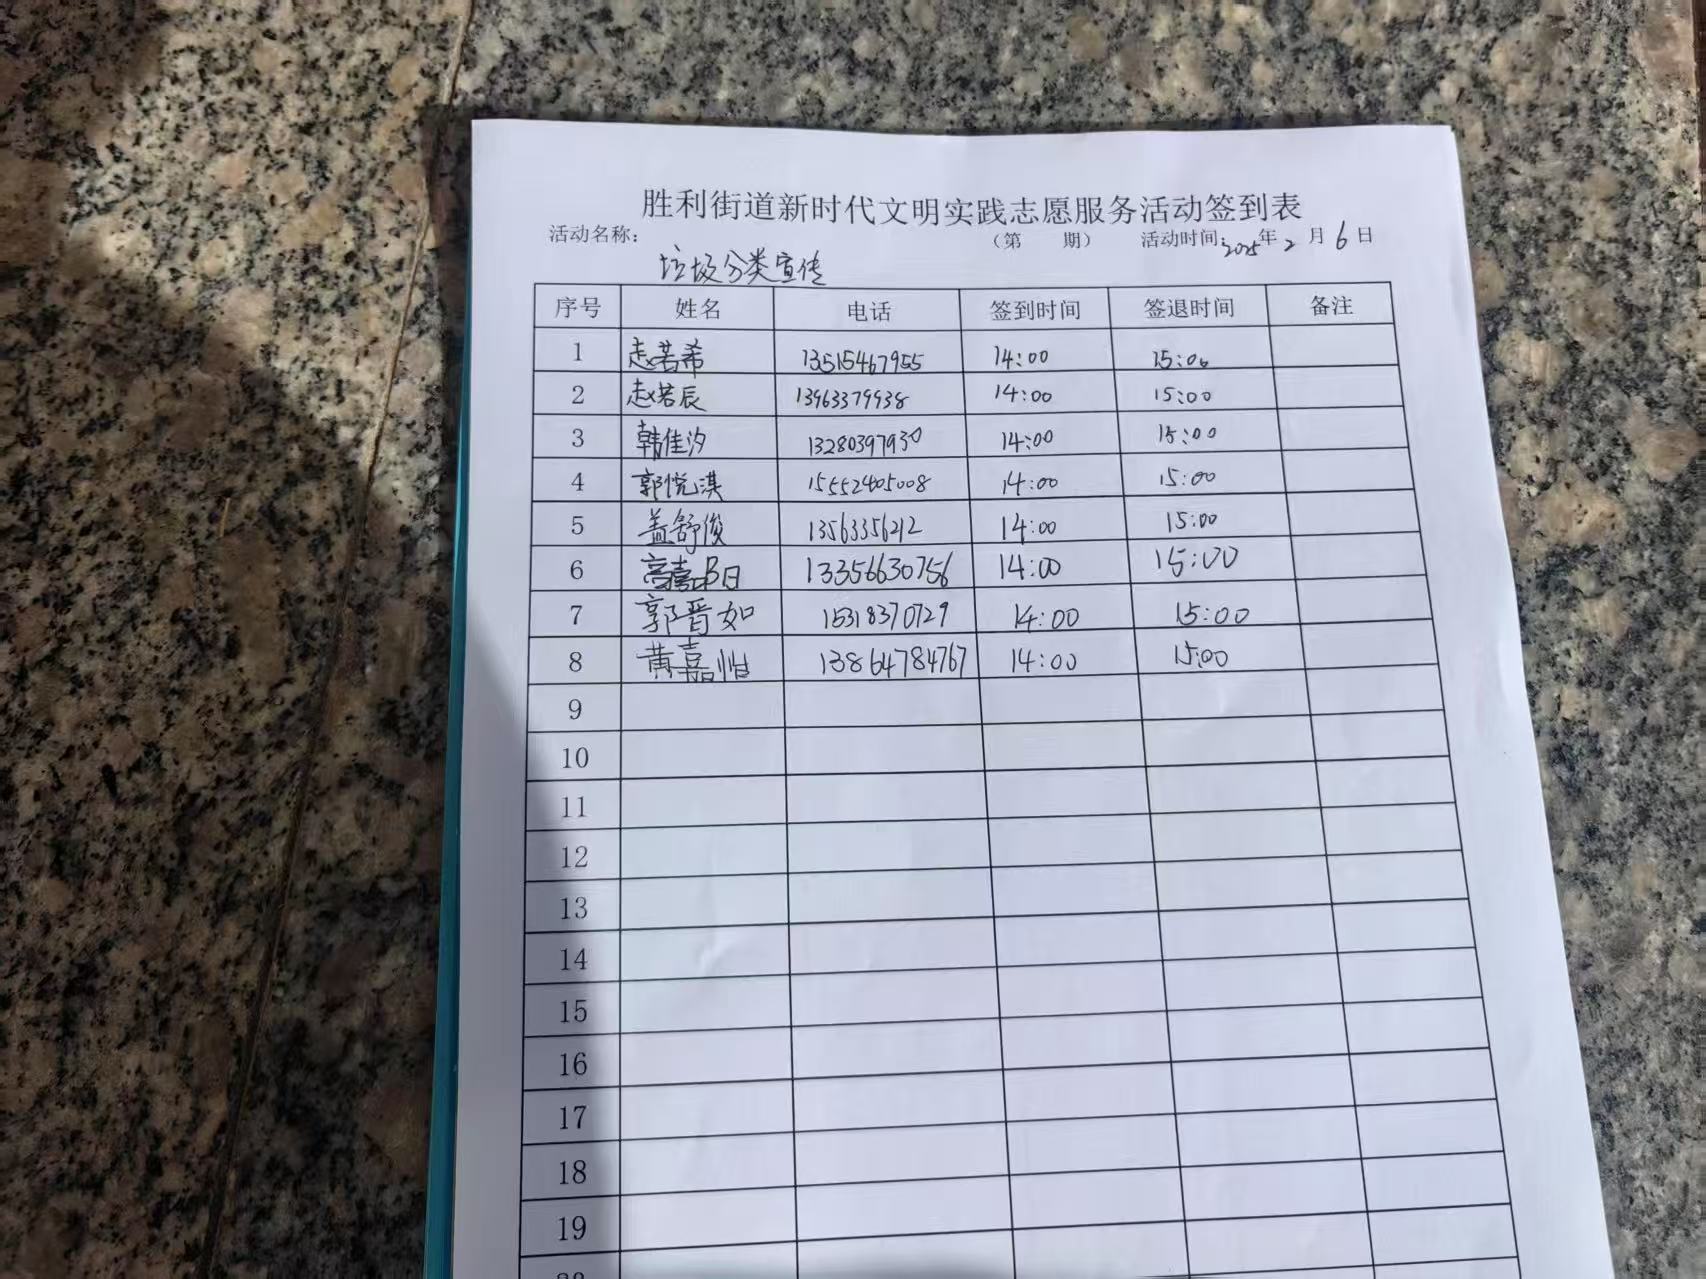 胜利街道新时代文明实践志愿服务活动签到表
活动名称: （第 期） 活动时间:2025年2月6日
垃圾分类宣传
序号 姓名 电话 签到时间 签退时间 备注
1 赵若希 13515467955 14:00 15:00
2 赵若辰 13963379938 14:00 15:00
3 韩佳汐 13280397930 14:00 15:00
4 郭悦淇 15552405008 14:00 15:00
5 盖舒俊 13563356212 14:00 15:00
6 高嘉 13356630756 14:00 15:00
7 郭晋如 15318370729 14:00 15:00
8 黄嘉怡 13864784767 14:00 15:00
9
10
11
12
13
14
15
16
17
18
19